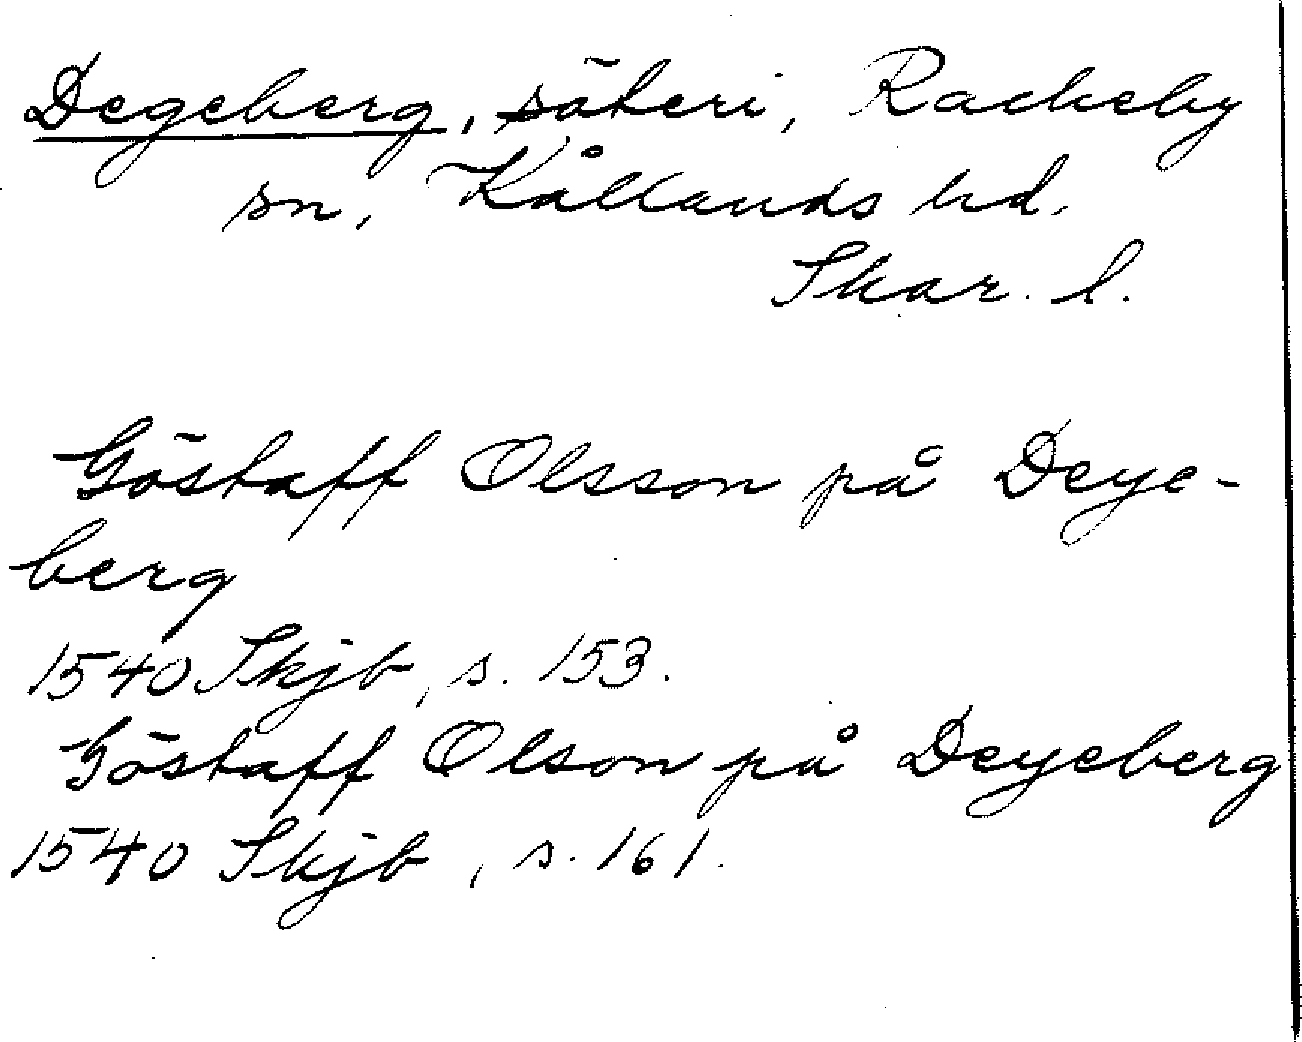 Degeberg, säteri, Rackeby
sn, Kållands hd.
Skar. l.
Göstaff Olsson på Deye-
berg
1540 Skjb, s. 153.
Göstaff Olson på Deyeberg
1540 Skjb, s. 161.